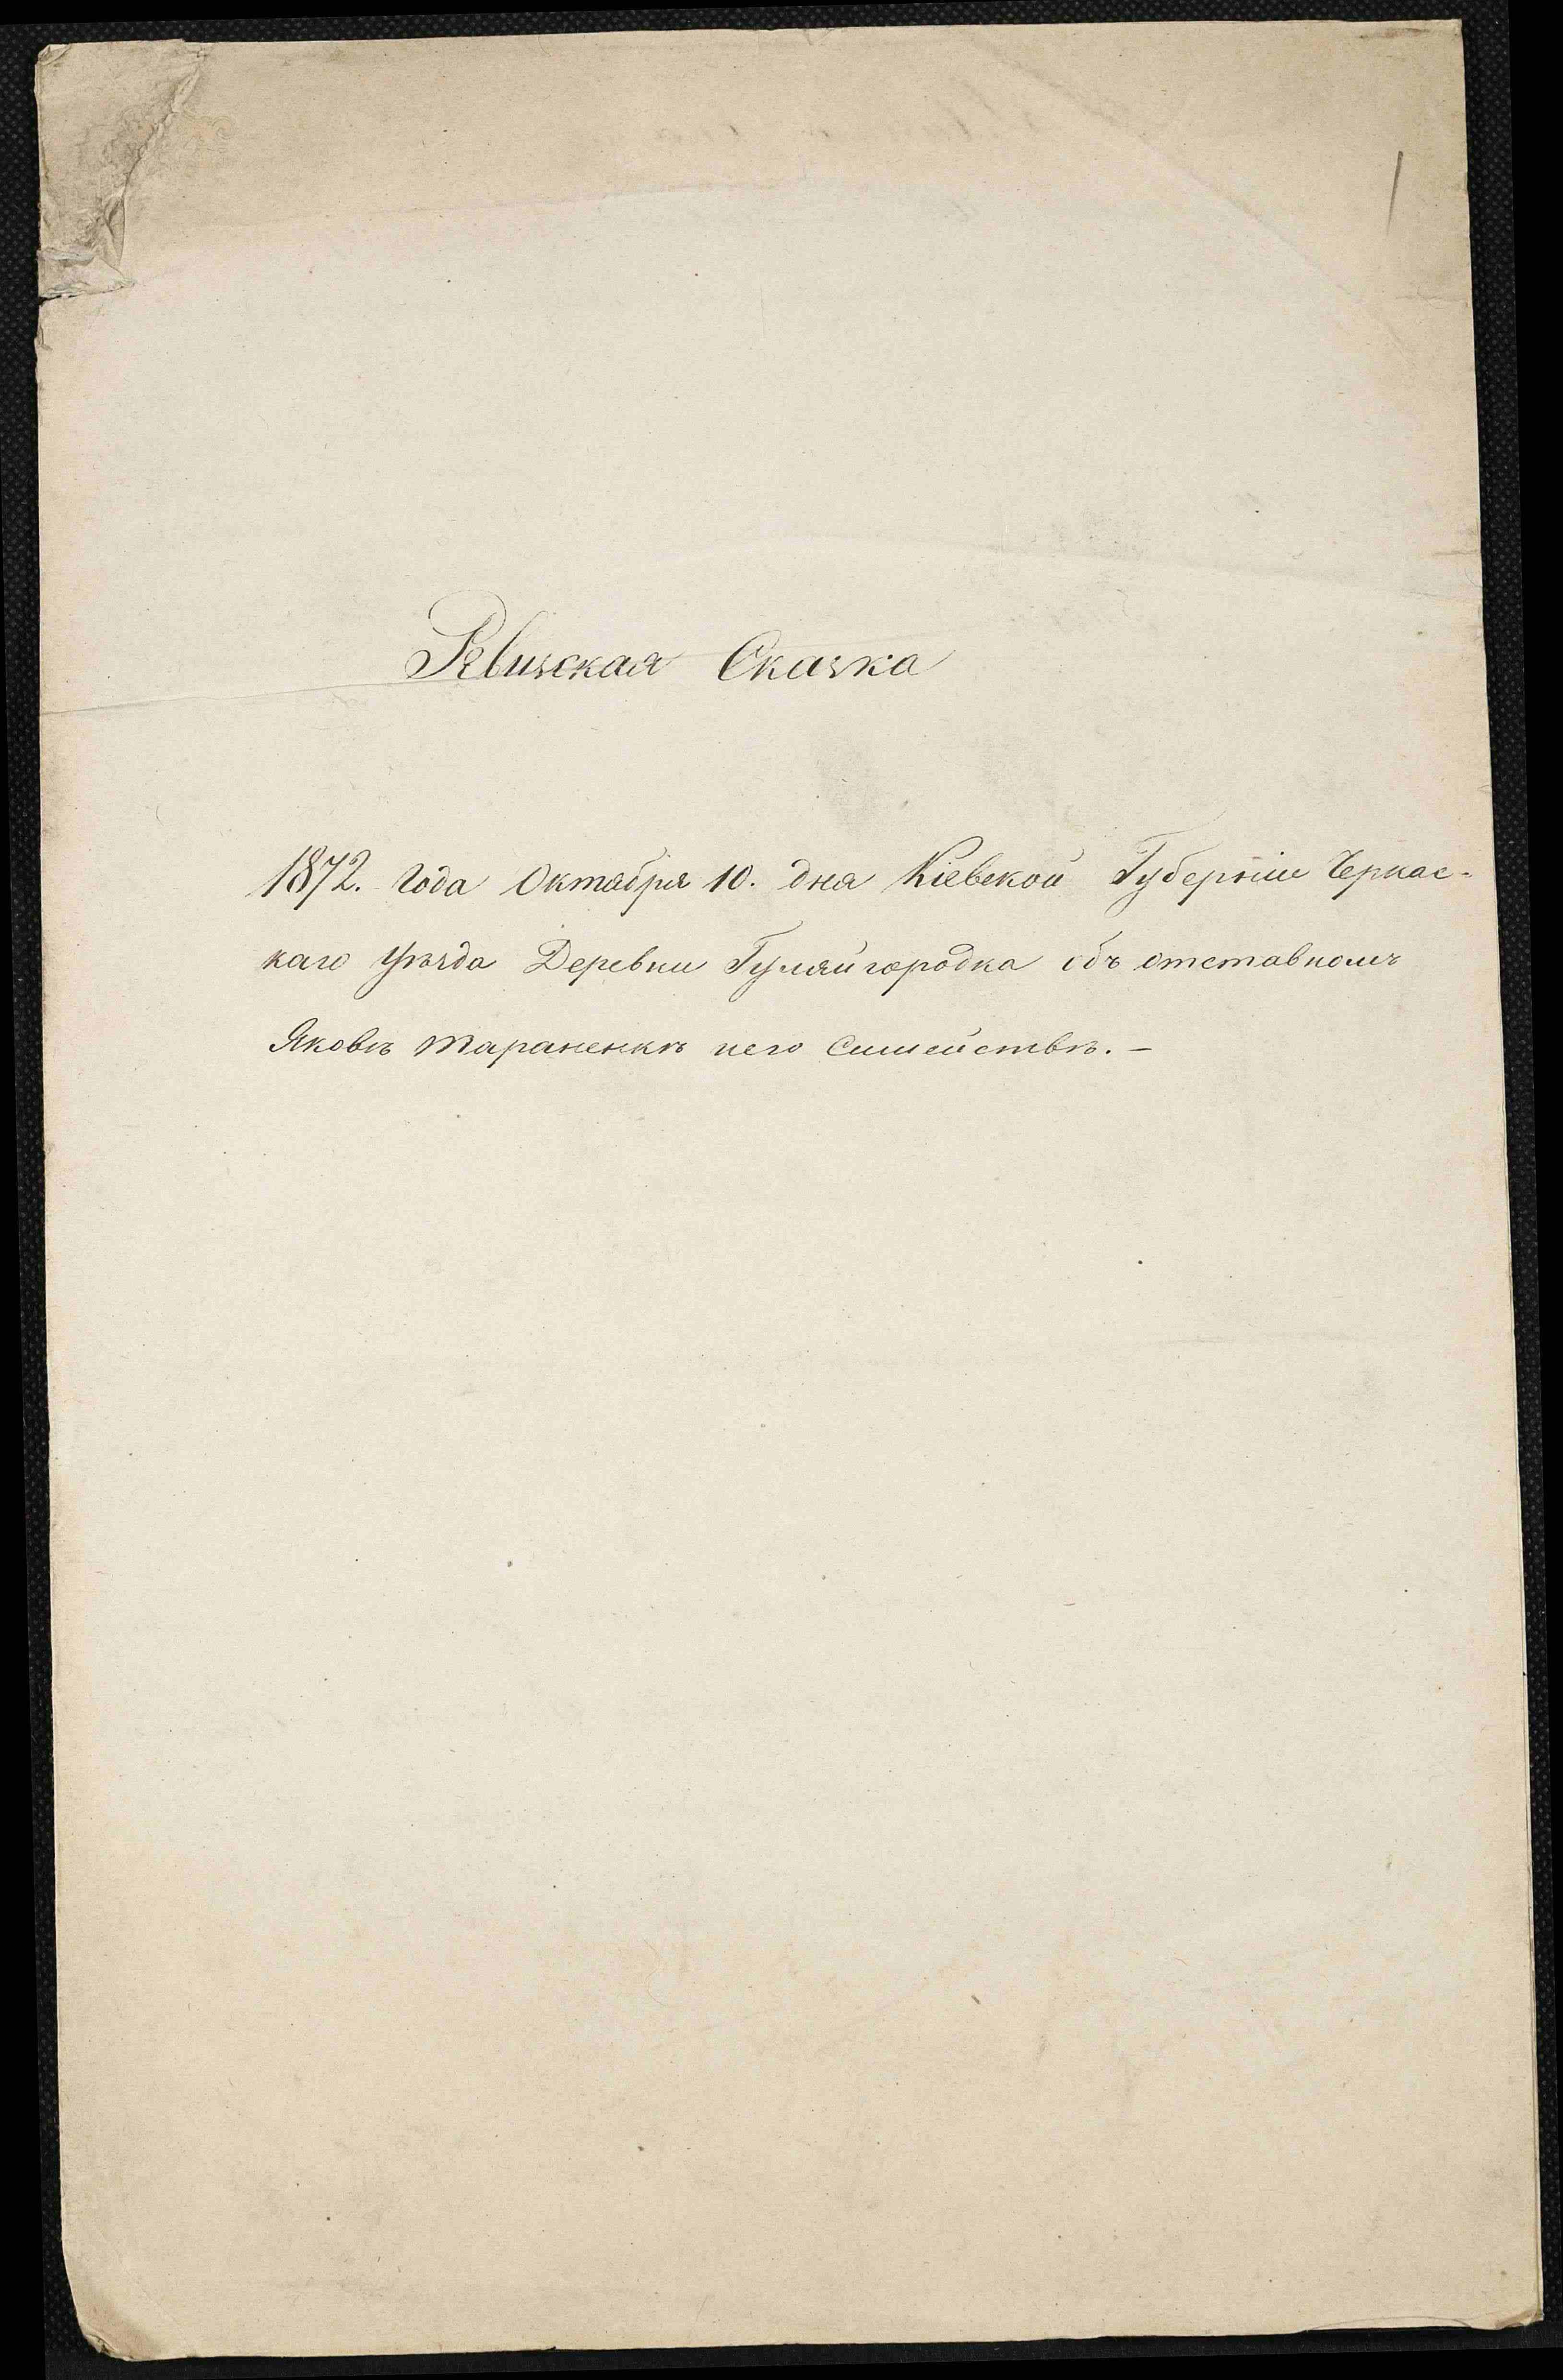 Ревизская Сказка
1872. Года Октября 10. дня Кіевской Губерніи Черкас-
каго Уѣзда Деревни Гуляйгородка объ отставномъ
Яковѣ Тараненкѣ иего Симействѣ. –